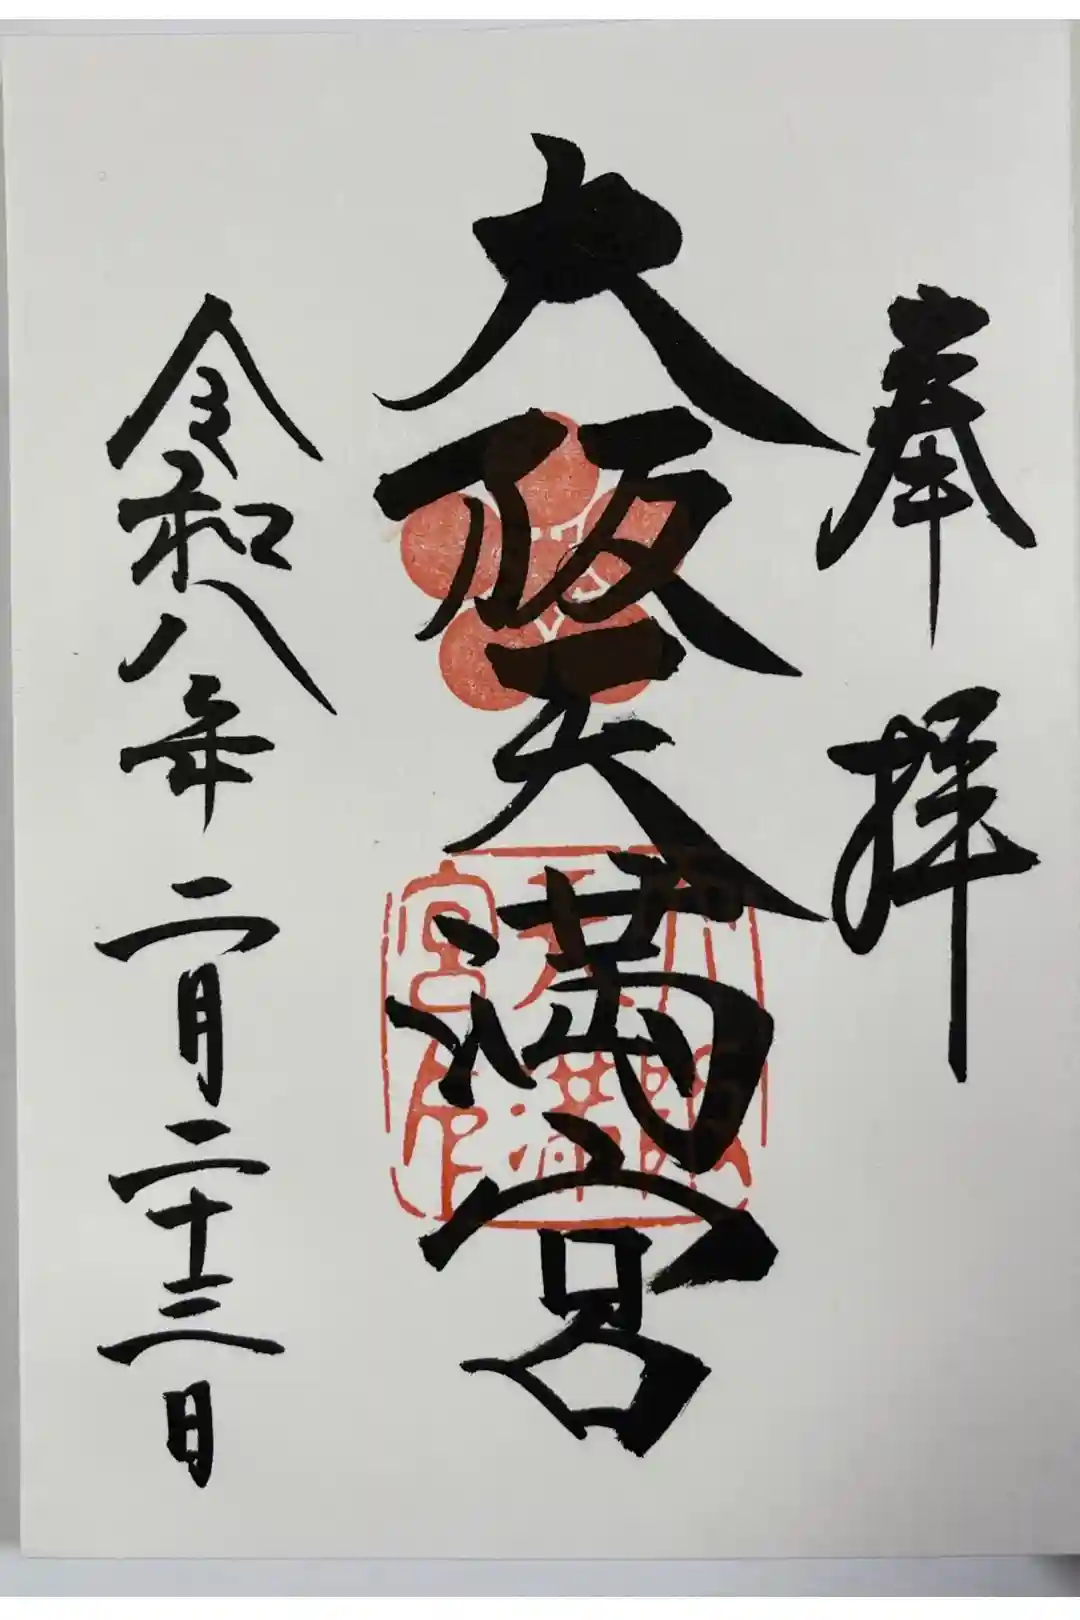 奉拝
大阪天満宮
令和八年二月二十三日
大阪天満宮印